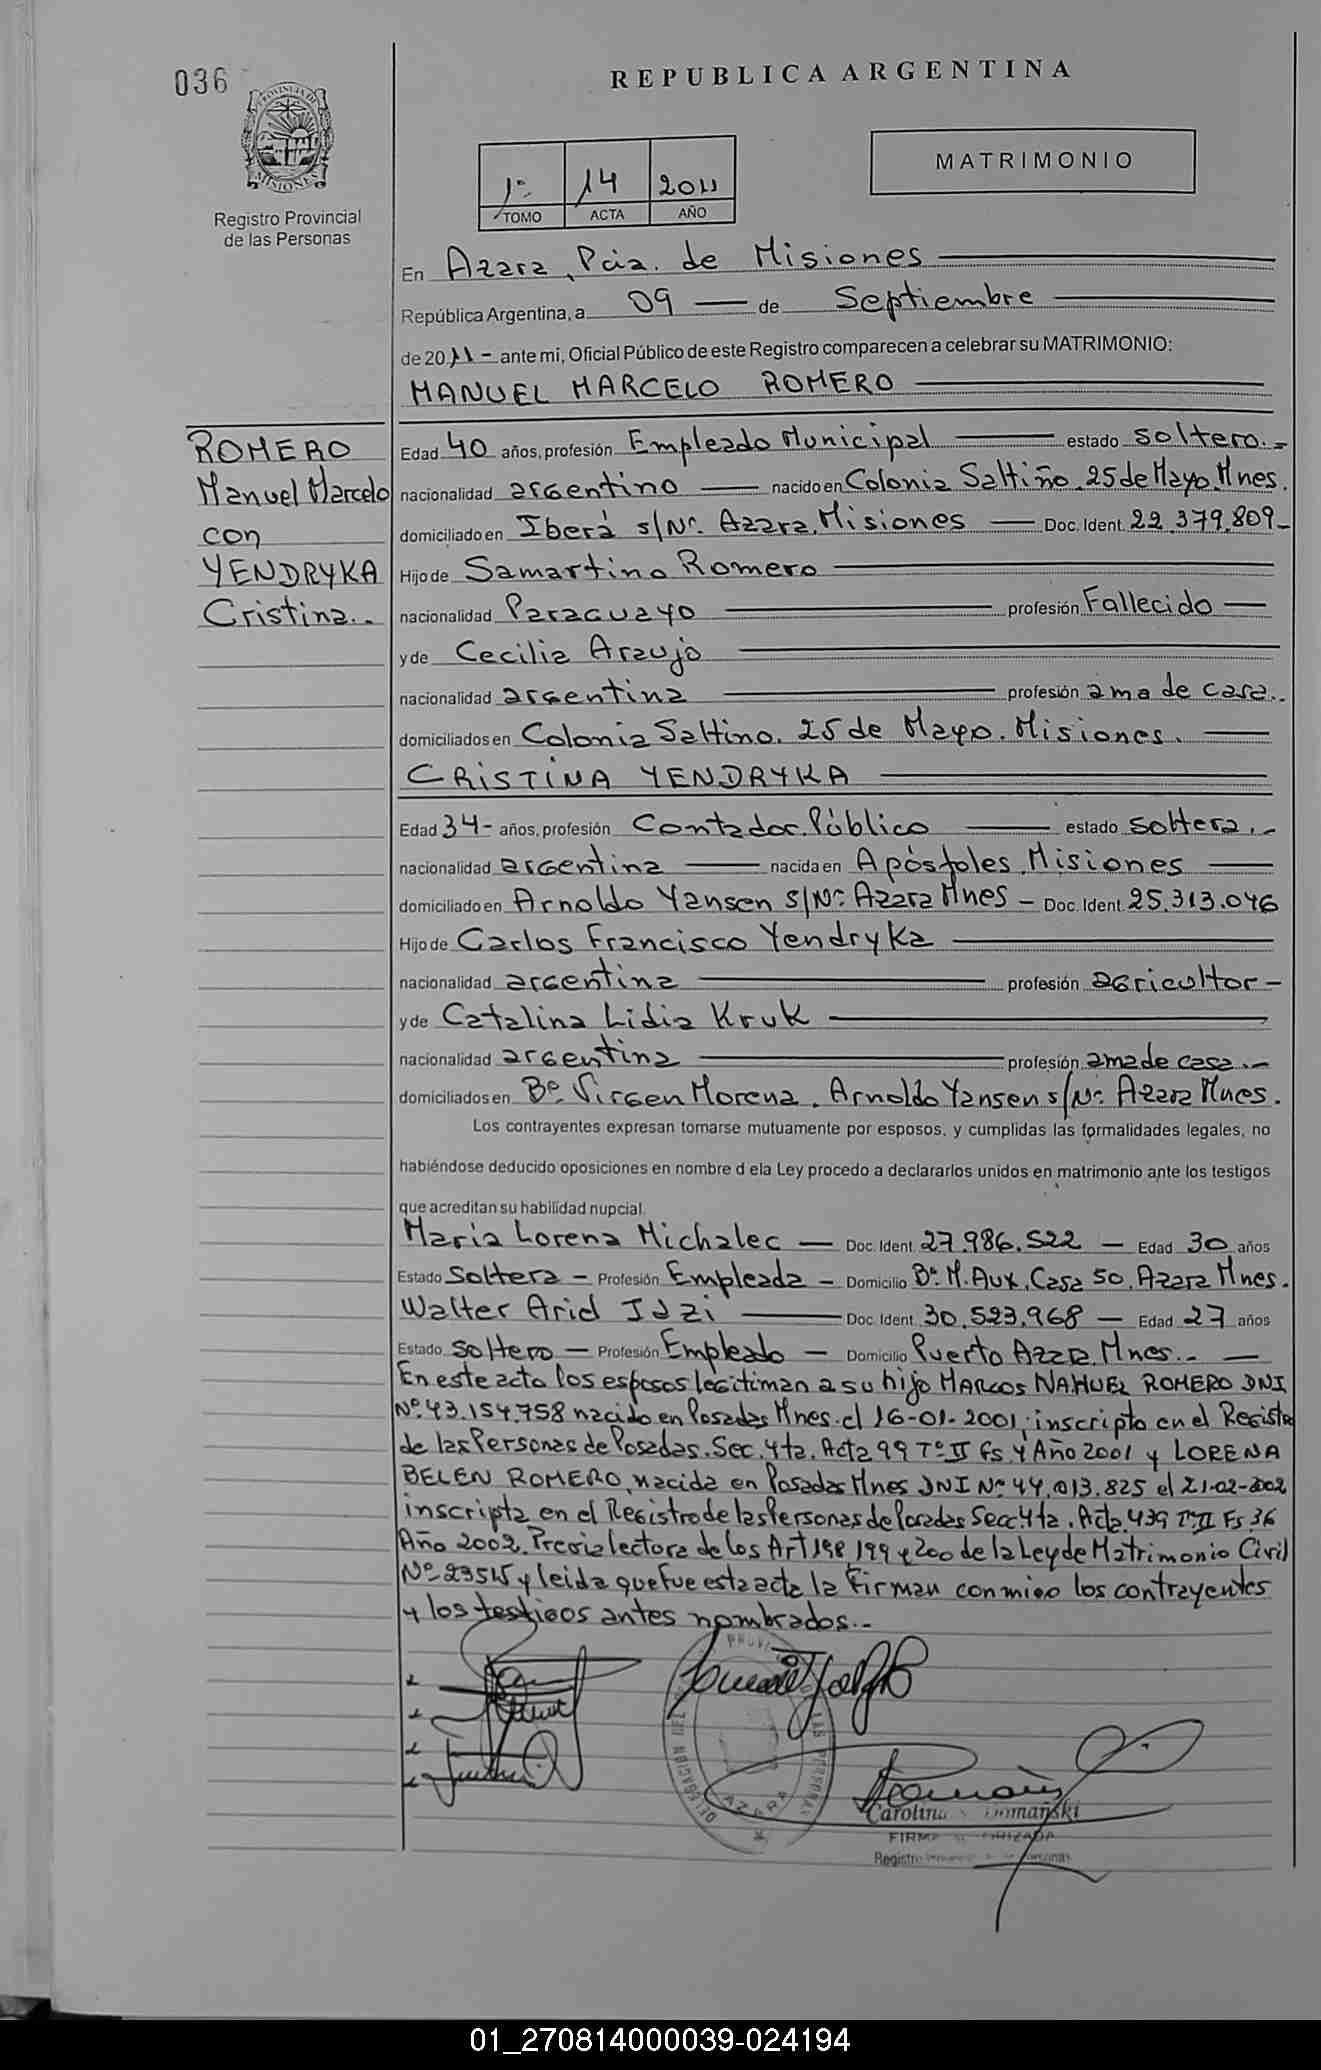 036
REPUBLICA ARGENTINA
PROVINCIA DE
MISIONES
MATRIMONIO
1º 14 2011
TOMO ACTA AÑO
Registro Provincial
de las Personas
En Azara, Pcia. de Misiones
República Argentina, a 09 de Septiembre
de 2011 - ante mi, Oficial Público de este Registro comparecen a celebrar su MATRIMONIO:
MANUEL MARCELO ROMERO
ROMERO
Manuel Marcelo
con
YENDRYKA
Cristina..
Edad 40 años, profesión Empleado Municipal estado soltero.-
nacionalidad argentino nacido en Colonia Saltiño. 25 de Mayo. Mnes.
domiciliado en Iberá s/Nº. Azara. Misiones Doc. Ident. 22.379.809-
Hijo de Samartino Romero
nacionalidad Paraguayo profesión Fallecido
y de Cecilia Araujo
nacionalidad argentina profesión ama de casa..
domiciliados en Colonia Saltino. 25 de Mayo. Misiones.
CRISTINA YENDRYKA
Edad 34- años, profesión Contador Público estado soltera.-
nacionalidad argentina nacida en Apóstoles. Misiones
domiciliado en Arnoldo Yansen s/Nº Azara Mnes - Doc. Ident. 25.313.046
Hijo de Carlos Francisco Yendryka
nacionalidad argentina profesión agricultor -
y de Catalina Lidia Kruk
nacionalidad argentina profesión ama de casa.-
domiciliados en Bº. Virgen Morena. Arnoldo Yansen s/Nº Azara Mnes.
Los contrayentes expresan tomarse mutuamente por esposos, y cumplidas las formalidades legales, no
habiéndose deducido oposiciones en nombre d ela Ley procedo a declararlos unidos en matrimonio ante los testigos
que acreditan su habilidad nupcial.
Maria Lorena Michalec - Doc. Ident. 27.986.522 - Edad 30 años
Estado Soltera - Profesión Empleada - Domicilio Bº. M. Aux. Casa 50. Azara Mnes.
Walter Arid Idzi Doc. Ident. 30.523.968 - Edad 27 años
Estado soltero - Profesión Empleado - Domicilio Puerto Azara. Mnes..
En este acto los esposos legitiman a su hijo MARCOS NAHUEL ROMERO DNI
Nº 43.154.758 nacido en Posadas Mnes. el 16-01-2001, inscripto en el Registro
de las Personas de Posadas. Sec. 4ta. Acta 99 Tº II Fs. 4 Año 2001 y LORENA
BELEN ROMERO, nacida en Posadas Mnes DNI Nº 44.013.825 el 21-02-2002
inscripta en el Registro de las Personas de Posadas Secc 4ta. Acta 439 Tº II Fs. 36
Año 2002. Previa lectora de los Art 198, 199 y 200 de la Ley de Matrimonio Civil
Nº 23515 y leida que fue esta acta la firman conmigo los contrayentes
y los testigos antes nombrados.-
DELEGACION DEL
LAS PERSONAS
AZARA
Carolina Domañski
Registro
01_270814000039-024194